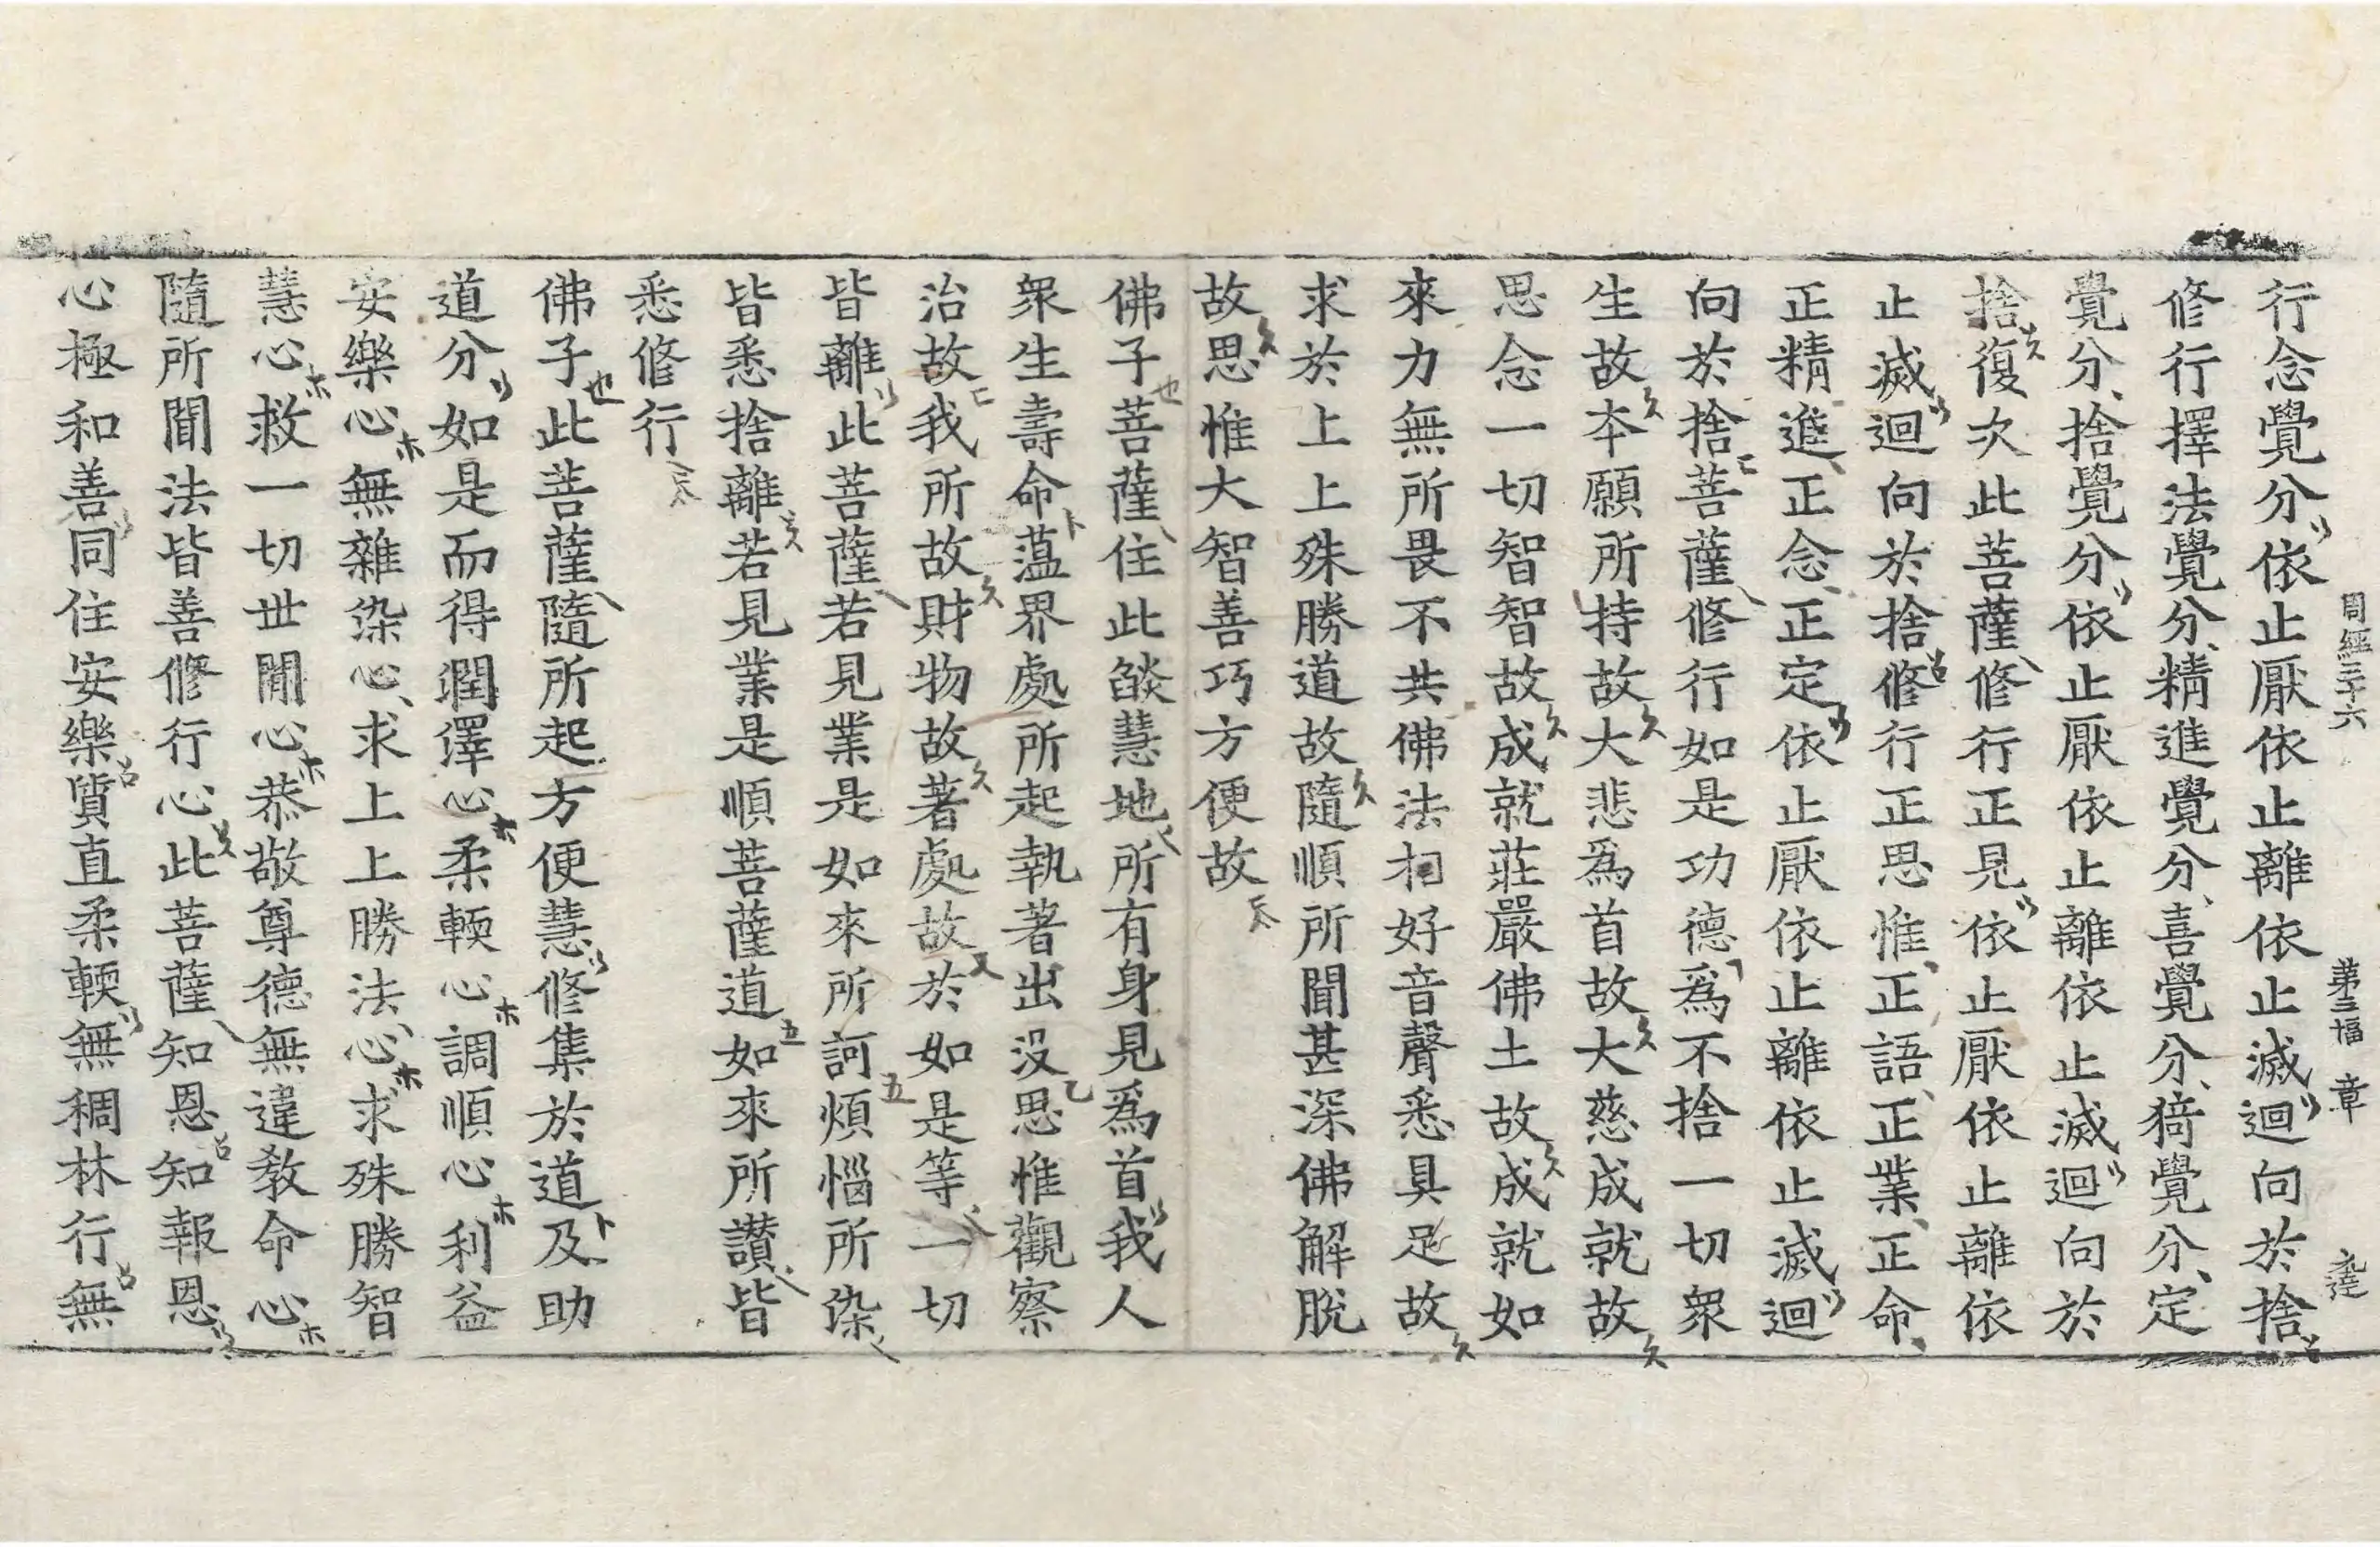 周經三十六 第三幅 章
行念覺分依止厭依止離依止滅迴向於捨
修行擇法覺分精進覺分喜覺分猗覺分定
覺分捨覺分依止厭依止離依止滅迴向於
捨復次此菩薩修行正見依止厭依止離依
止滅迴向於捨修行正思惟正語正業正命
正精進正念正定依止厭依止離依止滅迴
向於捨菩薩修行如是功德爲不捨一切衆
生故本願所持故大悲爲首故大慈成就故
思念一切智智故成就莊嚴佛土故成就如
來力無所畏不共佛法相好音聲悉具足故
求於上上殊勝道故隨順所聞甚深佛解脫
故思惟大智善巧方便故
佛子菩薩住此𦦨慧地所有身見爲首我人
衆生壽命蘊界處所起執著出沒思惟觀察
治故我所故財物故著處故於如是等一切
皆離此菩薩若見業是如來所訶煩惱所染
皆悉捨離若見業是順菩薩道如來所讚皆
悉修行
佛子此菩薩隨所起方便慧修集於道及助
道分如是而得潤澤心柔輭心調順心利益
安樂心無雜染心求上上勝法心求殊勝智
慧心救一切世間心恭敬尊德無違教命心
隨所聞法皆善修行心此菩薩知恩知報恩
心極和善同住安樂質直柔輭無稠林行無